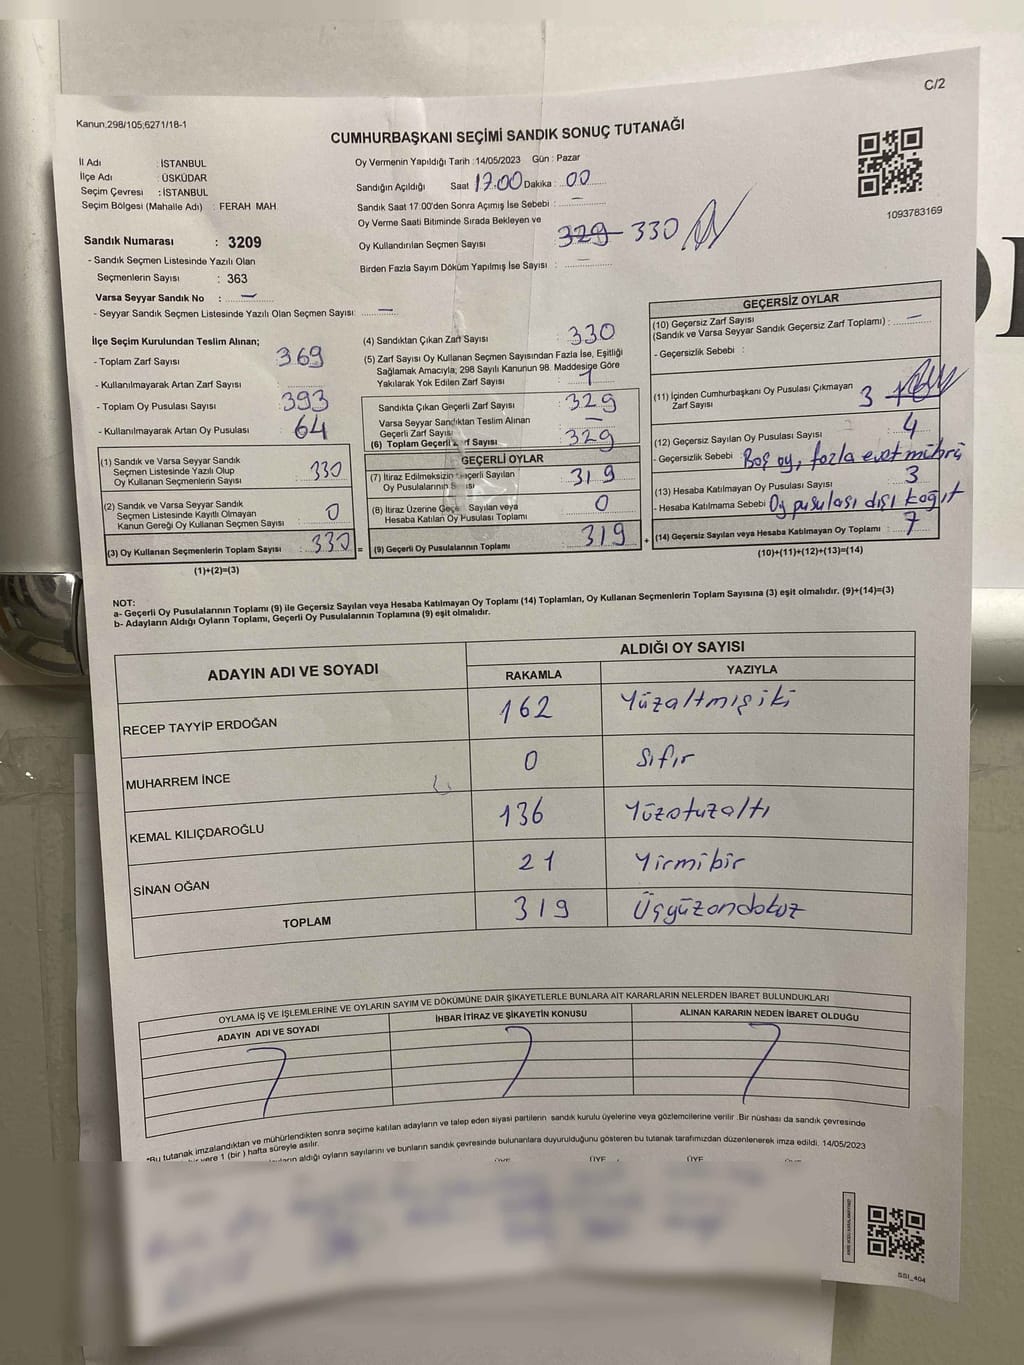 C/2
Kanun,298/105;6271/18-1
CUMHURBAŞKANI SEÇİMİ SANDIK SONUÇ TUTANAĞI
İl Adı : İSTANBUL
İlçe Adı : ÜSKÜDAR
Seçim Çevresi : İSTANBUL
Seçim Bölgesi (Mahalle Adı) : FERAH MAH.
Sandık Numarası : 3209
- Sandık Seçmen Listesinde Yazılı Olan
Seçmenlerin Sayısı : 363
Varsa Seyyar Sandık No : —
- Seyyar Sandık Seçmen Listesinde Yazılı Olan Seçmen Sayısı: —
Oy Vermenin Yapıldığı Tarih : 14/05/2023 Gün : Pazar
Sandığın Açıldığı Saat 17.00 Dakika : 00
Sandık Saat 17:00'den Sonra Açımış İse Sebebi : —
Oy Verme Saati Bitiminde Sırada Bekleyen ve
Oy Kullandırılan Seçmen Sayısı : 329 330
Birden Fazla Sayım Döküm Yapılmış İse Sayısı : —
1093783169
İlçe Seçim Kurulundan Teslim Alınan;
- Toplam Zarf Sayısı : 369
- Kullanılmayarak Artan Zarf Sayısı :
- Toplam Oy Pusulası Sayısı : 393
- Kullanılmayarak Artan Oy Pusulası : 64
(1) Sandık ve Varsa Seyyar Sandık
Seçmen Listesinde Yazılı Olup
Oy Kullanan Seçmenlerin Sayısı : 330
(2) Sandık ve Varsa Seyyar Sandık
Seçmen Listesinde Kayıtlı Olmayan
Kanun Gereği Oy Kullanan Seçmen Sayısı : 0
(3) Oy Kullanan Seçmenlerin Toplam Sayısı : 330 =
(1)+(2)=(3)
(4) Sandıktan Çıkan Zarf Sayısı : 330
(5) Zarf Sayısı Oy Kullanan Seçmen Sayısından Fazla İse, Eşitliği
Sağlamak Amacıyla; 298 Sayılı Kanunun 98. Maddesine Göre
Yakılarak Yok Edilen Zarf Sayısı : 1
Sandıkta Çıkan Geçerli Zarf Sayısı : 329
Varsa Seyyar Sandıktan Teslim Alınan
Geçerli Zarf Sayısı : —
(6) Toplam Geçerli Zarf Sayısı : 329
GEÇERLİ OYLAR
(7) İtiraz Edilmeksizin Geçerli Sayılan
Oy Pusulalarının Sayısı : 319
(8) İtiraz Üzerine Geçerli Sayılan veya
Hesaba Katılan Oy Pusulası Toplamı : 0
(9) Geçerli Oy Pusulalarının Toplamı : 319 +
GEÇERSİZ OYLAR
(10) Geçersiz Zarf Sayısı
(Sandık ve Varsa Seyyar Sandık Geçersiz Zarf Toplamı) : —
- Geçersizlik Sebebi :
(11) İçinden Cumhurbaşkanı Oy Pusulası Çıkmayan
Zarf Sayısı : 3
(12) Geçersiz Sayılan Oy Pusulası Sayısı : 4
- Geçersizlik Sebebi Boş oy, fazla evet mührü
(13) Hesaba Katılmayan Oy Pusulası Sayısı : 3
- Hesaba Katılmama Sebebi Oy pusulası dışı kağıt
(14) Geçersiz Sayılan veya Hesaba Katılmayan Oy Toplamı : 7
(10)+(11)+(12)+(13)=(14)
NOT:
a- Geçerli Oy Pusulalarının Toplamı (9) ile Geçersiz Sayılan veya Hesaba Katılmayan Oy Toplamı (14) Toplamları, Oy Kullanan Seçmenlerin Toplam Sayısına (3) eşit olmalıdır. (9)+(14)=(3)
b- Adayların Aldığı Oyların Toplamı, Geçerli Oy Pusulalarının Toplamına (9) eşit olmalıdır.
ADAYIN ADI VE SOYADI ALDIĞI OY SAYISI
RAKAMLA YAZIYLA
RECEP TAYYİP ERDOĞAN 162 Yüzaltmışiki
MUHARREM İNCE 0 Sıfır
KEMAL KILIÇDAROĞLU 136 Yüzotuzaltı
SİNAN OĞAN 21 Yirmibir
TOPLAM 319 Üçyüzondokuz
OYLAMA İŞ VE İŞLEMLERİNE VE OYLARIN SAYIM VE DÖKÜMÜNE DAİR ŞİKAYETLERLE BUNLARA AİT KARARLARIN NELERDEN İBARET BULUNDUKLARI
ADAYIN ADI VE SOYADI İHBAR İTİRAZ VE ŞİKAYETİN KONUSU ALINAN KARARIN NEDEN İBARET OLDUĞU
*Bu tutanak imzalandıktan ve mühürlendikten sonra seçime katılan adayların ve talep eden siyasi partilerin sandık kurulu üyelerine veya gözlemcilerine verilir .Bir nüshası da sandık çevresinde
yere 1 (bir ) hafta süreyle asılır.
aldığı oyların sayılarını ve bunların sandık çevresinde bulunanlara duyurulduğunu gösteren bu tutanak tarafımızdan düzenlenerek imza edildi. 14/05/2023
ÜYE ÜYE ÜYE
SSI_404